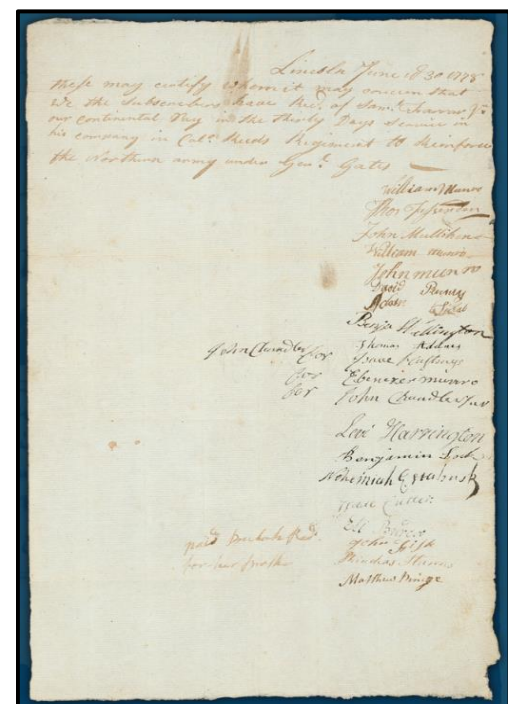 Lincoln June 30 1778
these may certify whom it may concern that
We the Subscribers have Rec.d of Sam.ll Farrar Jr
our continental Pay for the Thirty Days Service in
his company in Col.o Reeds Regiment to Reinforce
the Northern army under Gen.l Gates
William Munro
Thos Fessenden
John Mulliken
William Munro
John munro
David
Adam
Benja Wellington
Thomas
John Chandler for Isaac Hastings
for Ebenezer munro
for John Chandler Jur
Levi Harrington
Benjamin
Nehemiah Estabrook
Isaac Cutler
Eli Burdoo
John Fisk
paid
for her Phinehas Stearns
Matthew Bridge